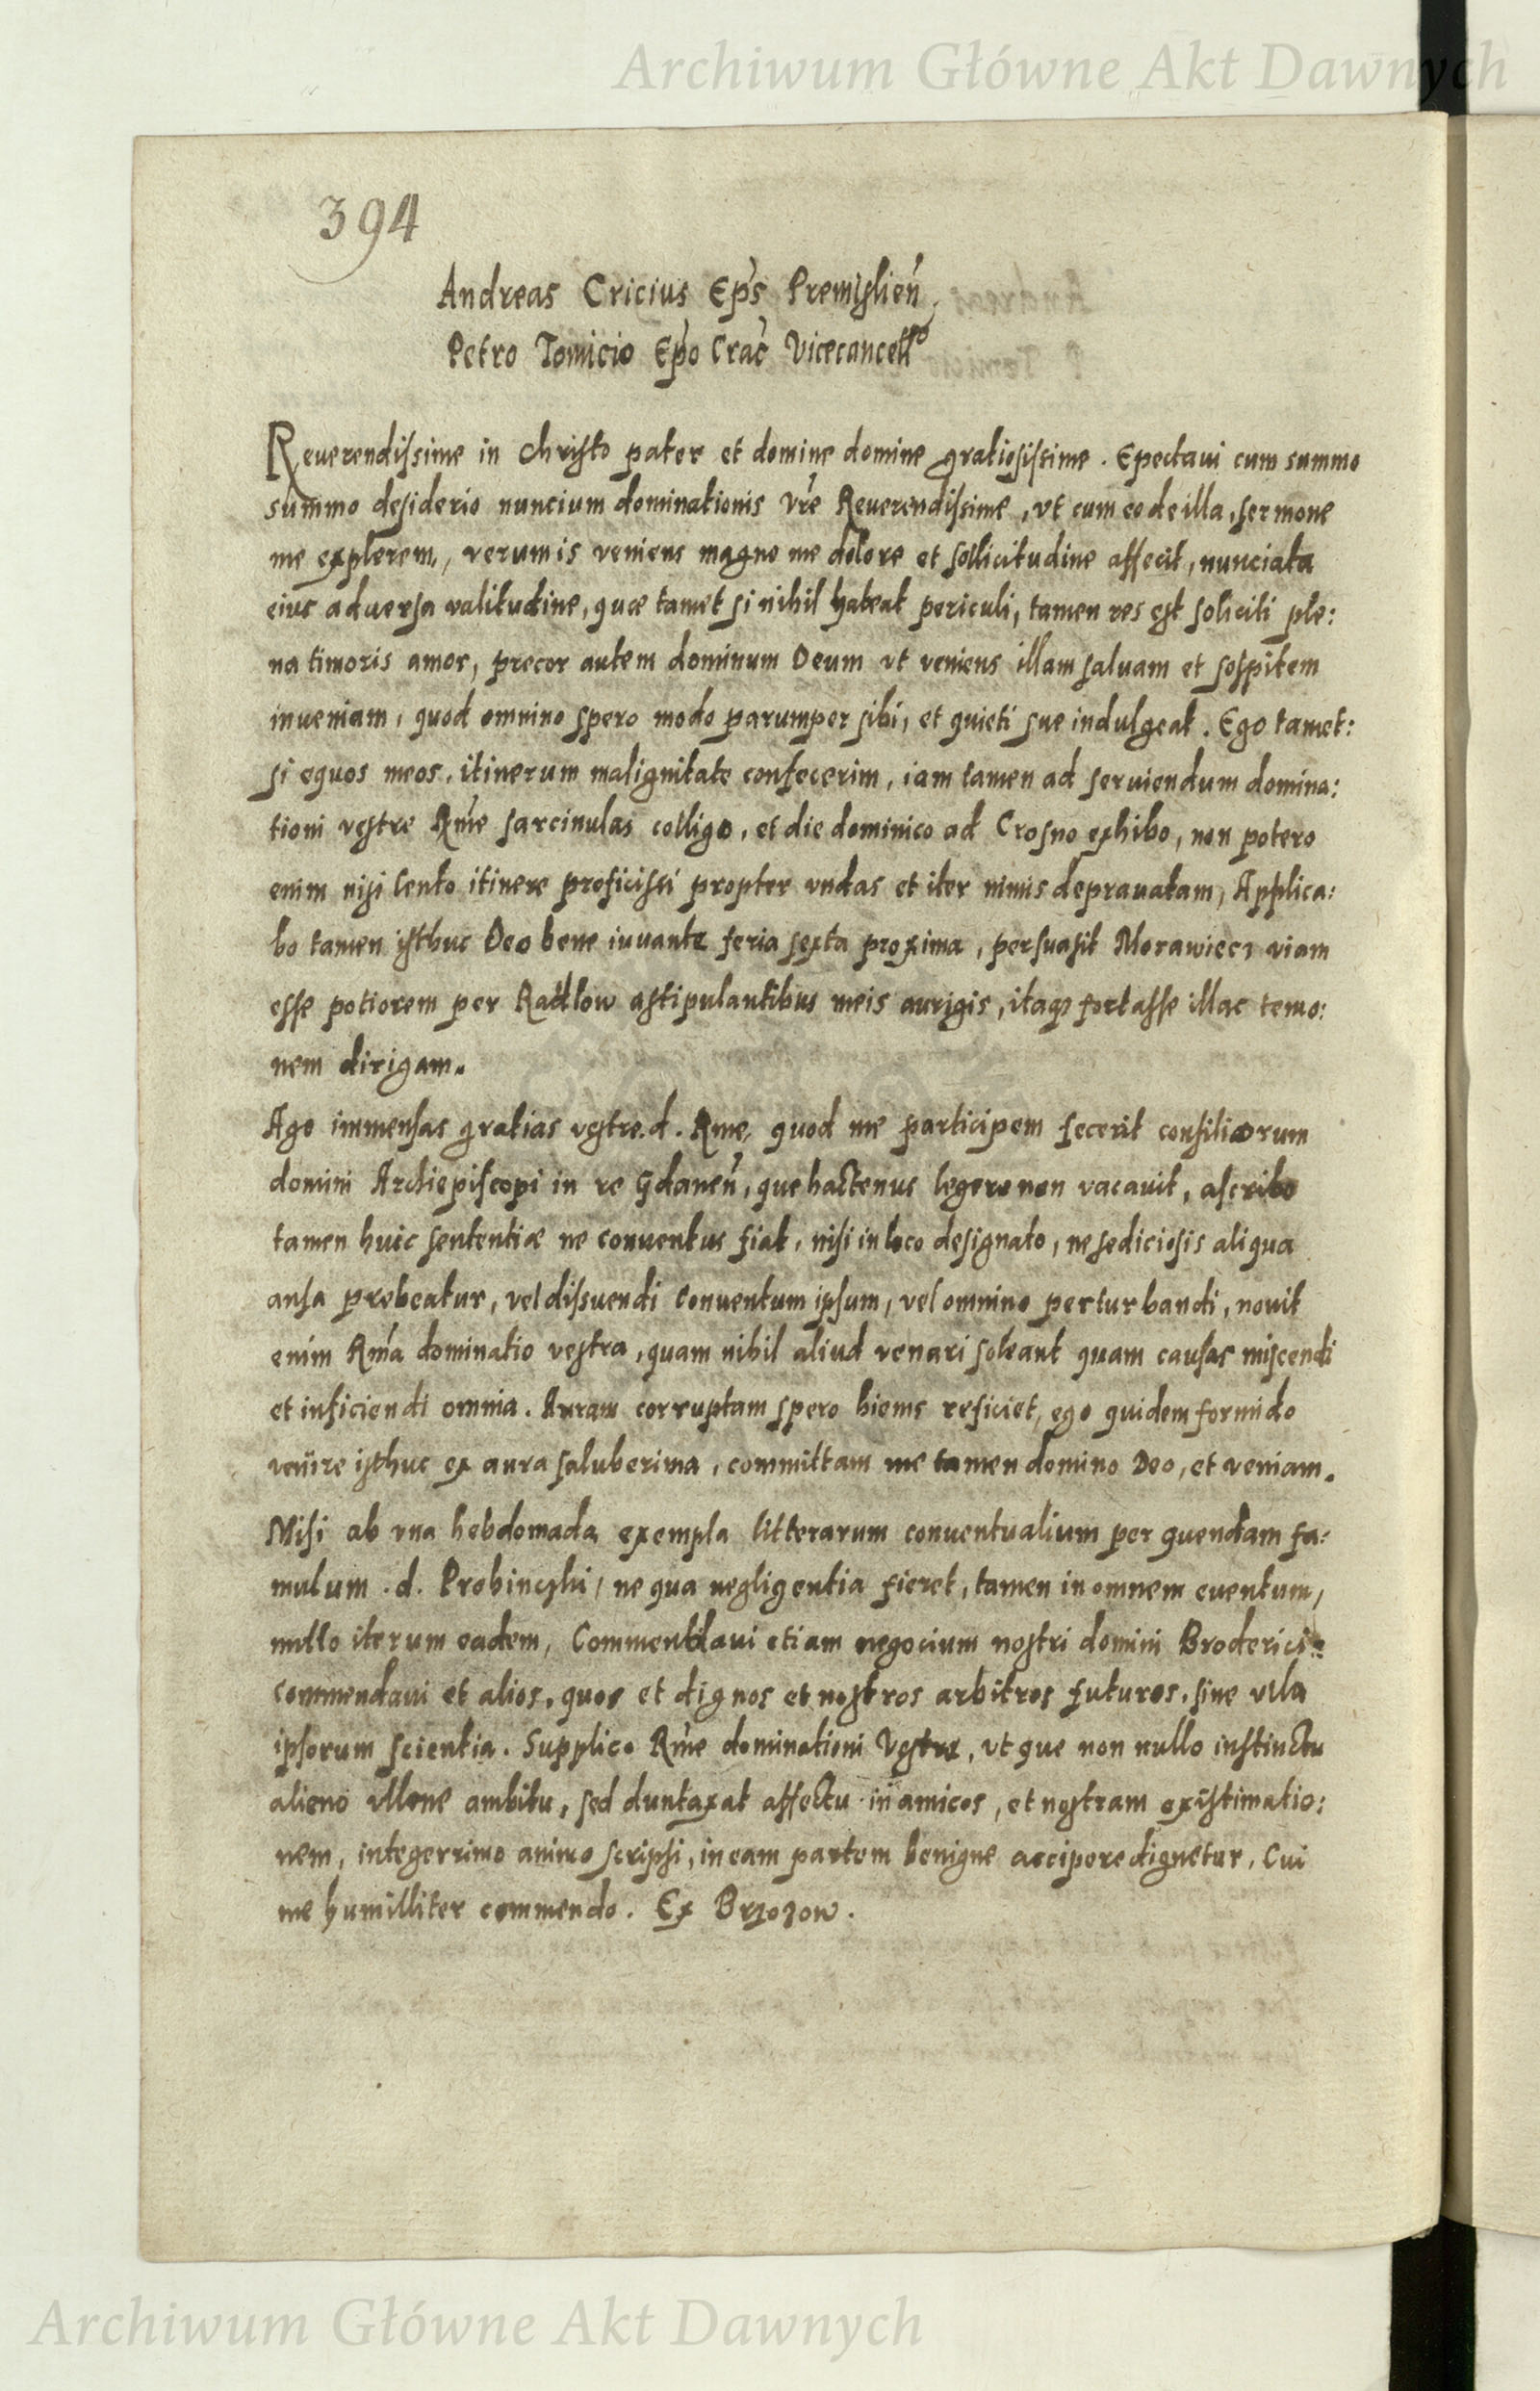 Archiwum Główne Akt Dawnych
394
Andreas Cricius Ep̃s Premislieñ
Petro Tomicio Ep̃o Crac̃ Vicecancello
Reuerendissime in Christo pater et domine domine gratiosissime. Epectaui cum summo
summo desiderio nuncium dominationis vr̃e Reuerendissime, vt cum eo de illa, sermone
me explerem, verum is veniens magno me dolore et sollicitudine affecit, nunciata
eius aduersa valitudine, quæ tamet si nihil habeat periculi, tamen res est soliciti ple:
na timoris amor, precor autem dominum Deum vt veniens illam saluam et sospitem
inueniam, quod omnino spero modo parumper sibi, et quieti sue indulgeat. Ego tamet:
si equos meos, itinerum malignitate confecerim, iam tamen ad seruiendum domina:
tioni vestre Rm̃e sarcinulas colligo, et die dominico ad Crosno exhibo, non potero
enim nisi lento itinere proficisci propter vndas et iter nimis deprauatam, Applica:
bo tamen isthuc Deo bene iuuante feria sexta proxima, persuasit Morawiecz viam
esse potiorem per Radlow astipulantibus meis aurigis, itaq; fortasse illac temo:
nem dirigam.
Ago immensas gratias vestre. d. Rme, quod me participem fecerit consiliorum
domini Archiepiscopi in re Gdaneñ, que hactenus legere non vacauit, ascribo
tamen huic sententiæ ne conuentus fiat, nisi in loco designato, ne sediciosis aliqua
ansa prebeatur, vel dissuendi Conuentum ipsum, vel omnino perturbandi, nouit
enim Rm̃a dominatio vestra, quam nihil aliud venari soleant quam causas miscendi
et inficiendi omnia. Auram corruptam spero hiems reficiet, ego quidem formido
venire isthuc ex aura saluberima, committam me tamen domino Deo, et veniam.
Misi ab vna hebdomada exempla litterarum conuentualium per quendam fa:
mulum. d. Probincski, ne qua negligentia fieret, tamen in omnem euentum,
mitto iterum eadem, Commendaui etiam negocium nostri domini Broderici
commendaui et alios, quos et dignos et nostros arbitros futuros, sine vlla
ipsorum scientia. Supplico Rm̃e dominationi Vestre, vt que non nullo instinctu
alieno vllone ambitu, sed duntaxat affectu in amicos, et nostram existimatio:
nem, integerrimo animo scripsi, in eam partem benigne accipere dignetur, Cui
me humilliter commendo. Ex Brzozow.
Archiwum Główne Akt Dawnych